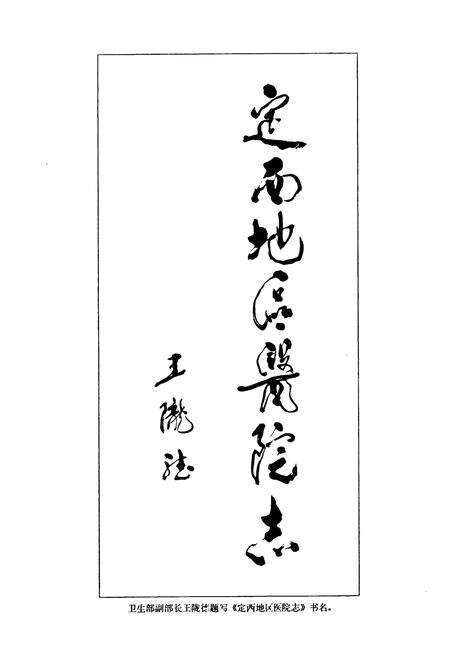 定西地區醫院志
王陇德
卫生部副部长王陇德题写《定西地区医院志》书名。